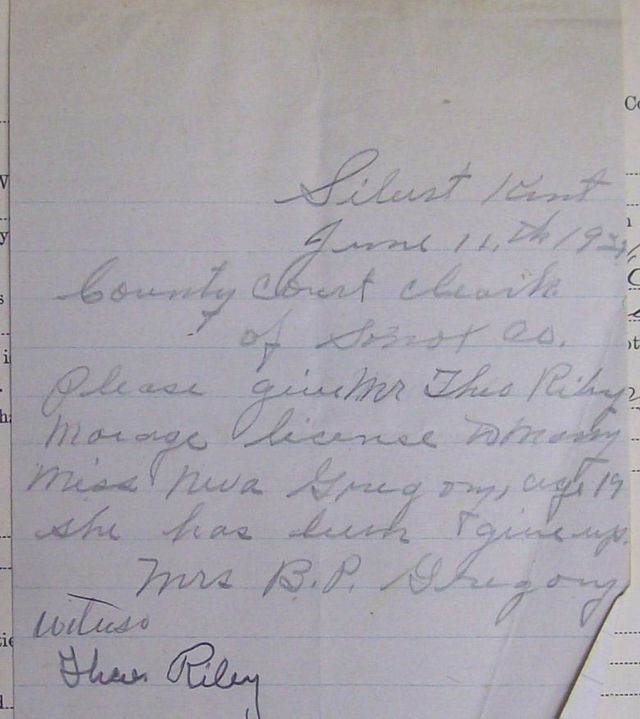 Silust Kent
June 11,th 19
County Court Cleark
of Co.
Please give Mr Theo Riley
Morage license to marry
Miss Neva Gregory, age 19
she has give up.
Mrs B.P. Gregory
Wituss
Theo. Riley